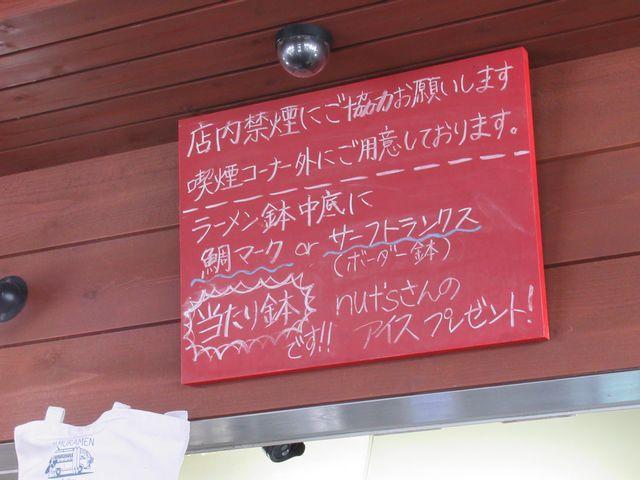 店内禁煙にご協力お願いします
喫煙コーナー外にご用意しております。
ラーメン鉢中底に
鯛マーク or サーフトランクス
(ボーダー鉢)
当たり鉢
です!! nuf'sさんの
アイスプレゼント!
MURAMEN